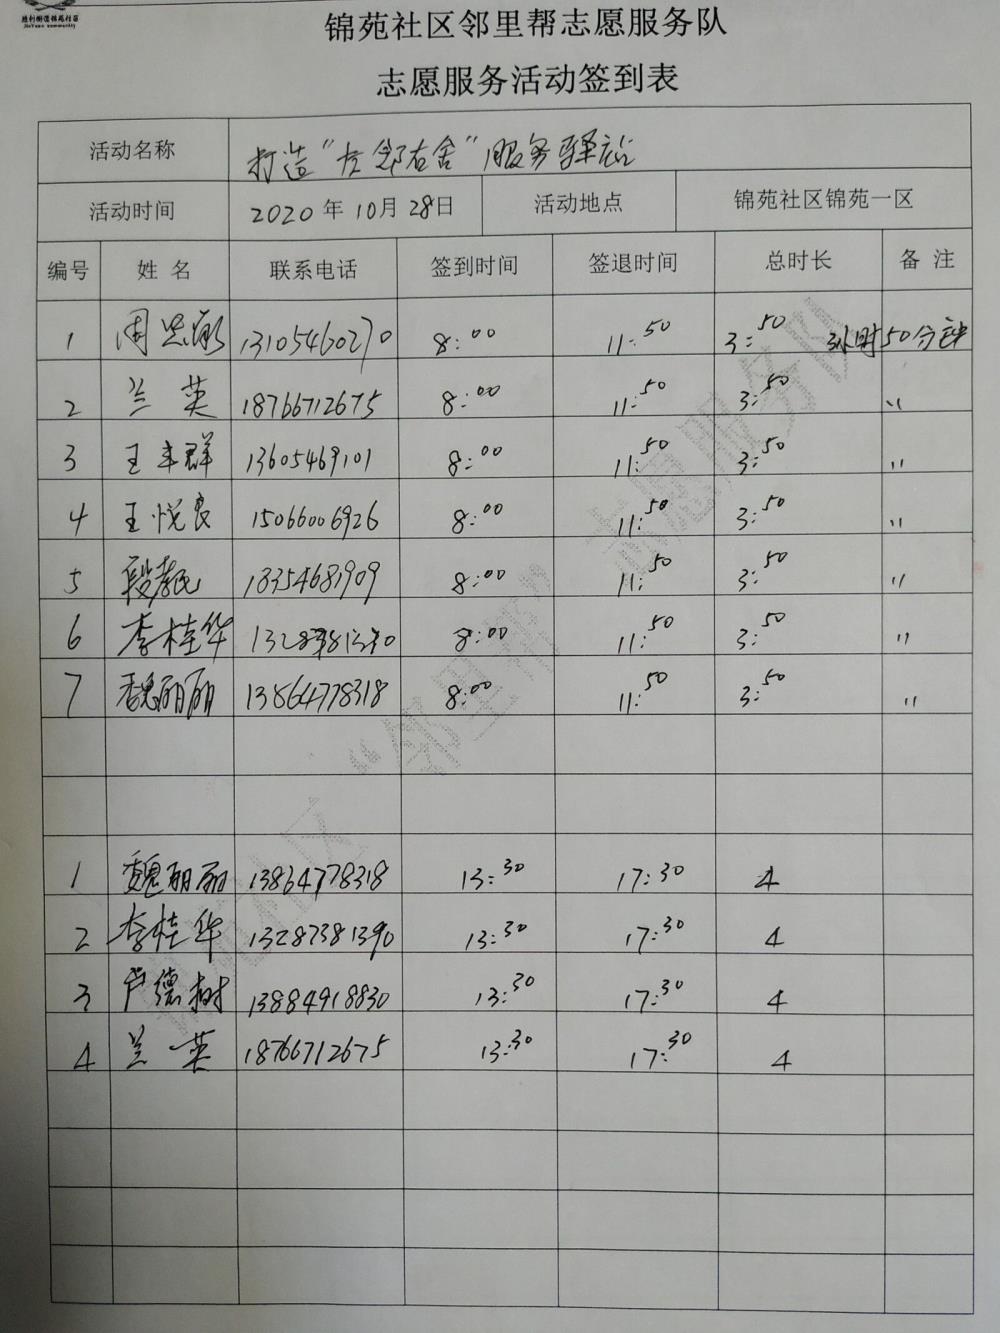 胜利街道锦苑社区
JinYuan community
锦苑社区邻里帮志愿服务队
志愿服务活动签到表
活动名称 打造“左邻右舍”服务驿站
活动时间 2020年10月28日 活动地点 锦苑社区锦苑一区
编号 姓名 联系电话 签到时间 签退时间 总时长 备注
1 周 13105460270 8:00 11:50 3:50 3小时50分钟
2 兰英 18766712675 8:00 11:50 3:50 〃
3 王丰群 13605469101 8:00 11:50 3:50 〃
4 王悦良 15066006926 8:00 11:50 3:50 〃
5 段孝民 18354681909 8:00 11:50 3:50 〃
6 李桂华 8:00 11:50 3:50 〃
7 魏丽丽 13864778318 8:00 11:50 3:50 〃
1 魏丽丽 13864778318 13:30 17:30 4
2 李桂华 13287381390 13:30 17:30 4
3 芦德树 13884918830 13:30 17:30 4
4 兰英 18766712675 13:30 17:30 4
锦苑社区“邻里帮”志愿服务队